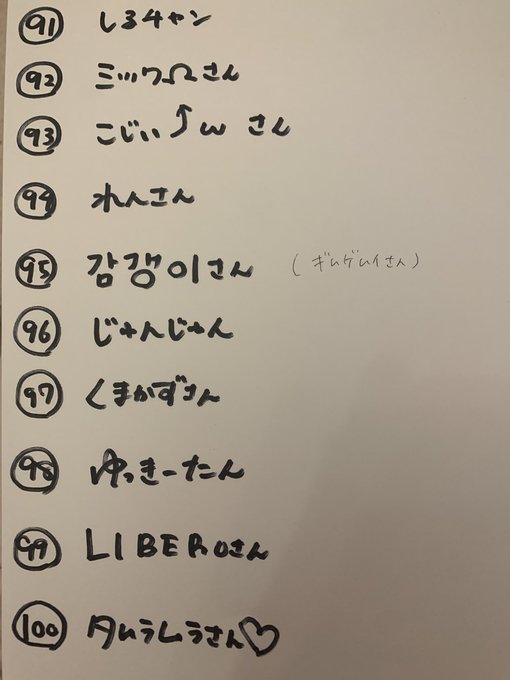 91 しるチャン
92 ミツワΩさん
93 こじぃ⤴ω さん
94 れんさん
95 감갱이さん (ギムゲムイさん)
96 じゃんじゃん
97 くまかずさん
98 ゆっきーたん
99 LIBEROさん
100 タムラムラさん♡